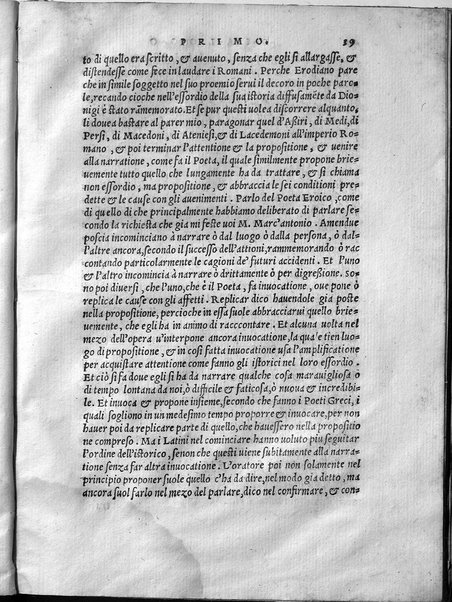 PRIMO. 59
to di quello era scritto, & auenuto, senza che egli si allargasse, &
distendesse come fece in laudare i Romani. Perche Erodiano pare
che in simile soggetto nel suo proemio serui il decoro in poche paro
le, recando cioche nell'essordio della sua istoria diffusamẽte da Dio-
nigi è stato rãmemorato. Et se pur questi uolea discorrere alquanto,
li douea bastare al parer mio, paragonar quel d'Aßiri, di Medi, di
Persi, di Macedoni, di Ateniesi, & di Lacedemoni all'imperio Ro-
mano, & poi terminar l'attentione & la propositione, & uenire
alla narratione, come fa il Poeta, il quale similmente propone brie-
uemente tutto quello che lungamente ha da trattare, & si chia
ma non essordio, ma propositione, & abbraccia le sei conditioni pre-
dette & le cause con gli auenimenti. Parlo del Poeta Eroico, come
di quello di che principalmente habbiamo deliberato di parlare se-
condo la richiesta che gia mi feste uoi M. Marc'antonio. Amendue
poscia incominciano à narrare ò dal luogo ò dalla persona, ò dal-
l'altre ancora, secondo il successo dell'attioni, rammemorando ò rac
contando particolarmente le cagioni de' futuri accidenti. Et l'uno
& l'altro incomincia à narrare ò drittamente ò per digreßione. so-
no poi diuersi, che l'uno, che è il Poeta, fa inuocatione, oue pone ò
replica le cause con gli affetti. Replicar dico hauendole gia poste
nella propositione, percioche in essa suole abbracciarui quello brie-
uemente, che egli ha in animo di racccontare. Et alcuna uolta nel
mezo dell'opera u'interpone ancora inuocatione, la qua'e tien luo-
go di propositione, & in cosi fatta inuocatione usa l'amplificatione
per acquistare attentione come fanno gli istorici nel loro essordio.
Et ciò si fa doue egli si ha da narrare qualche cosa marauigliosa ò
di tempo lontana da noi, ò difficile & faticosa, ò nuoua & incredibi-
le. Et inuoca & propone insieme, secondo che fanno i Poeti Greci, i
quali sogliono in un medesimo tempo proporre & inuocare, per non
hauer poi da replicare parte di quello, che hauessero nella propositio
ne compreso. Ma i Latini nel cominciare hanno uoluto piu seguitar
l'ordine dell'istorico, se non che questi uiene subitamente alla narra-
tione senza far altra inuocatione. L'oratore poi non solamente nel
principio proponer suole quello c'ha da dire, nel modo gia detto, ma
ancora suol farlo nel mezo del parlare, dico nel confirmare, & con-